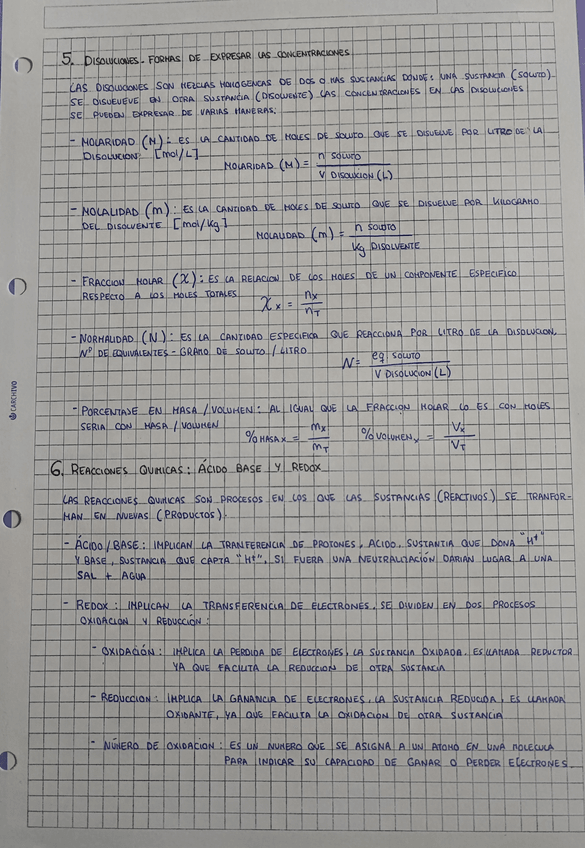 5. DISOLUCIONES. FORMAS DE EXPRESAR LAS CONCENTRACIONES
LAS DISOLUCIONES SON MEZCLAS HOMOGENEAS DE DOS O MAS SUSTANCIAS DONDE: UNA SUSTANCIA (SOLUTO)
SE DISUELVE EN OTRA SUSTANCIA (DISOLVENTE) LAS CONCENTRACIONES EN LAS DISOLUCIONES
SE PUEDEN EXPRESAR DE VARIAS MANERAS:
- MOLARIDAD (M): ES LA CANTIDAD DE MOLES DE SOLUTO QUE SE DISUELVE POR LITRO DE LA
DISOLUCION: [mol/L]
MOLARIDAD (M) = n SOLUTO / V DISOLUCION (L)
- MOLALIDAD (m): ES LA CANTIDAD DE MOLES DE SOLUTO QUE SE DISUELVE POR KILOGRAMO
DEL DISOLVENTE [mol/Kg]
MOLALIDAD (m) = n SOLUTO / Kg DISOLVENTE
- FRACCION MOLAR (X): ES LA RELACION DE LOS MOLES DE UN COMPONENTE ESPECIFICO
RESPECTO A LOS MOLES TOTALES
X x = nx / nT
- NORMALIDAD (N): ES LA CANTIDAD ESPECIFICA QUE REACCIONA POR LITRO DE LA DISOLUCION,
Nº DE EQUIVALENTES - GRAMO DE SOLUTO / LITRO
N = eq SOLUTO / V DISOLUCION (L)
- PORCENTAJE EN MASA / VOLUMEN: AL IGUAL QUE LA FRACCION MOLAR LO ES CON MOLES
SERIA CON MASA / VOLUMEN
% MASA x = mx / mT % VOLUMEN x = Vx / VT
CARCHIVO
6. REACCIONES QUIMICAS: ÁCIDO BASE Y REDOX
LAS REACCIONES QUIMICAS SON PROCESOS EN LOS QUE LAS SUSTANCIAS (REACTIVOS) SE TRANFOR-
MAN EN NUEVAS (PRODUCTOS).
- ÁCIDO / BASE: IMPLICAN LA TRANFERENCIA DE PROTONES, ACIDO, SUSTANTIA QUE DONA "H+"
Y BASE, SUSTANCIA QUE CAPTA "H+", SI FUERA UNA NEUTRALIZACIÓN DARIAN LUGAR A UNA
SAL + AGUA
- REDOX: IMPLICAN LA TRANSFERENCIA DE ELECTRONES, SE DIVIDEN EN DOS PROCESOS
OXIDACION Y REDUCCIÓN:
- OXIDACIÓN: IMPLICA LA PERDIDA DE ELECTRONES, LA SUSTANCIA OXIDADA, ES LLAMADA REDUCTOR
YA QUE FACILITA LA REDUCCION DE OTRA SUSTANCIA
- REDUCCION: IMPLICA LA GANANCIA DE ELECTRONES, LA SUSTANCIA REDUCIDA, ES LLAMADA
OXIDANTE, YA QUE FACILITA LA OXIDACION DE OTRA SUSTANCIA
- NÚMERO DE OXIDACION: ES UN NUMERO QUE SE ASIGNA A UN ATOMO EN UNA MOLECULA
PARA INDICAR SU CAPACIDAD DE GANAR O PERDER ELECTRONES.